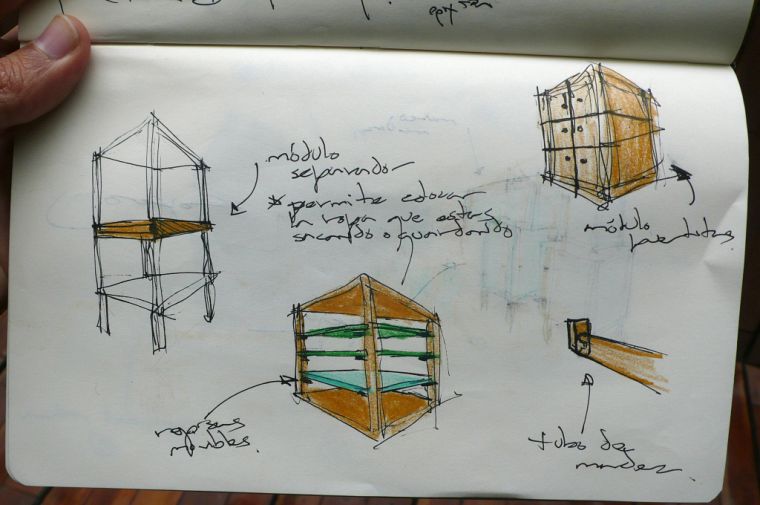 módulo
separador
* permite colocar
la ropa que estas
sacando o guardando
módulo
puertitas.
repisas
movibles.
tubo de
madera.